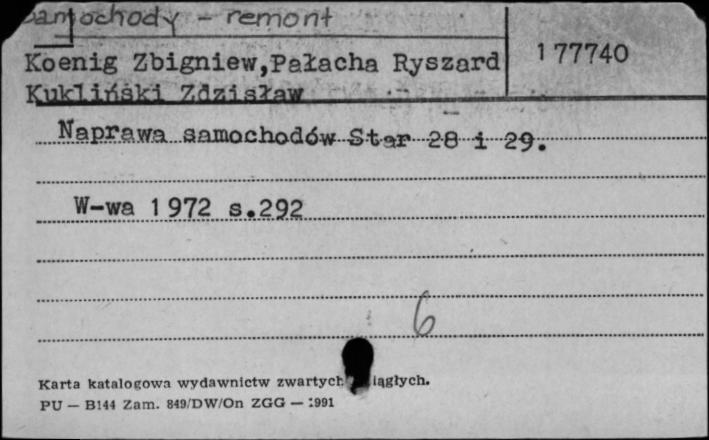 Samochody - remont
Koenig Zbigniew,Pałacha Ryszard
177740
Kukliński Zdzisław
Naprawa samochodów Star 28 i 29.
W-wa 1972 s.292
6
Karta katalogowa wydawnictw zwartych ciągłych.
PU — B144 Zam. 849/DW/On ZGG — 1991